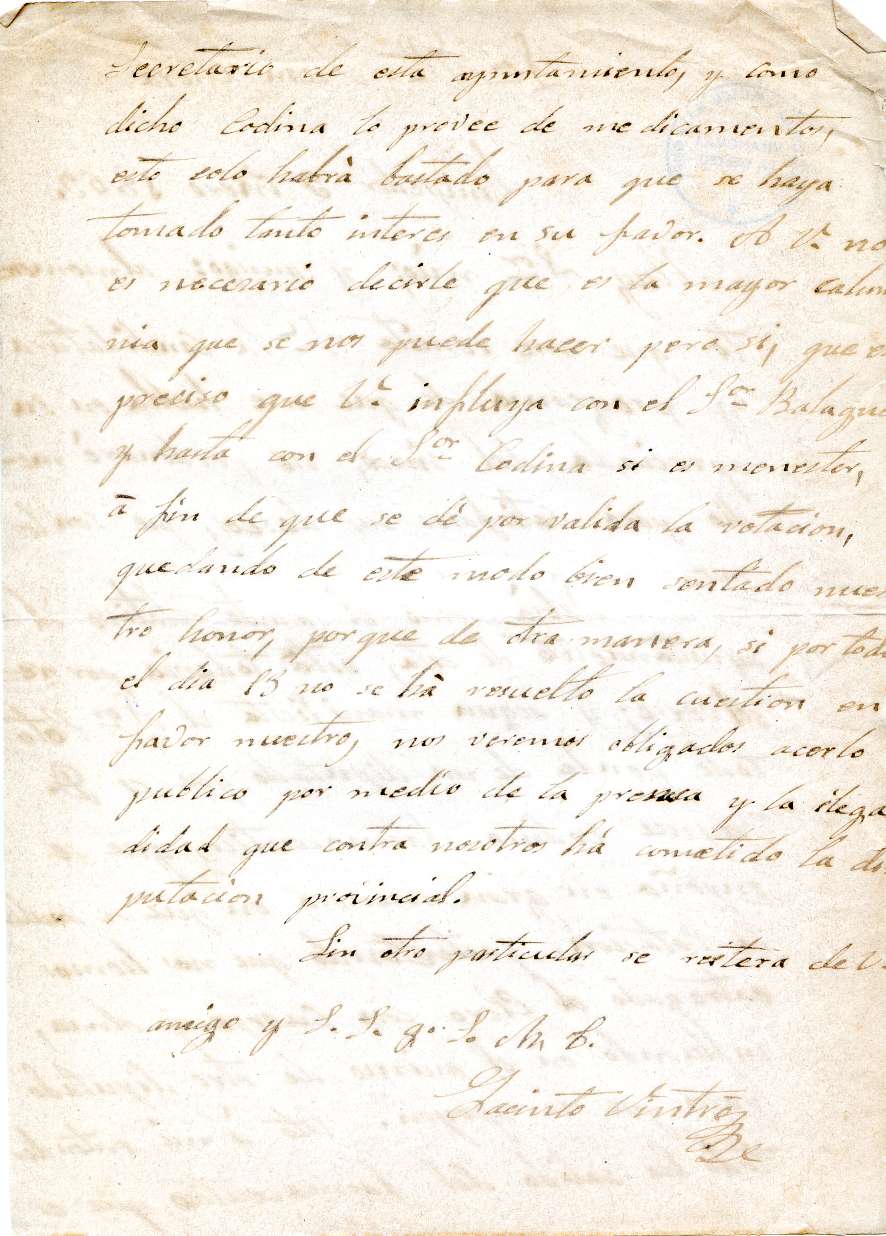 Secretario de esta ayuntamiento, y como
dicho Codina lo provee de medicamentos,
esto solo habrà bastado para que se haya
tomado tanto interes en su favor. A V. no
es necesario decirle que es la mayor calum
nia que se nos puede hacer pero si, que es
preciso que V. influya con el Sor Balague
y hasta con el Sor Codina si es menester,
à fin de que se dé por valida la votacion,
quedando de este modo bien sentado nues
tro honor, porque de otra manera, si por todo
el dia 13 no se hà resuelto la cuestion en
favor nuestro, nos veremos obligados acerlo
publico por medio de la prensa y la ilega
didad que contra nosotros há cometido la di
putacion provincial.
Sin otro particular se reitera de V.
amigo y S. S. q. S. M. B.
Jacinto Vintró